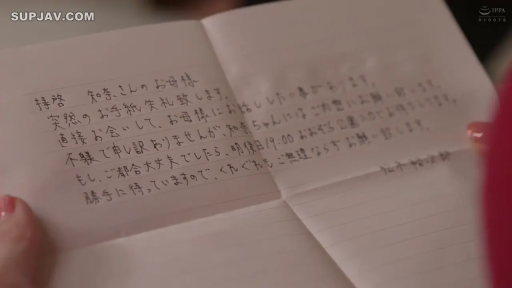 SUPJAV.COM
IPPA
拝啓 知奈さんのお母様
突然のお手紙失礼致します。
直接お会いして、お母様にお話ししたい事があります。
不躾で申し訳ありませんが、知奈ちゃんにはご内密にお願い致します。
もし、ご都合大丈夫でしたら、明後日19:00 公園入口にお待ちしてます。
勝手に待っていますので、くれぐれもご無理ならずお願い致します。